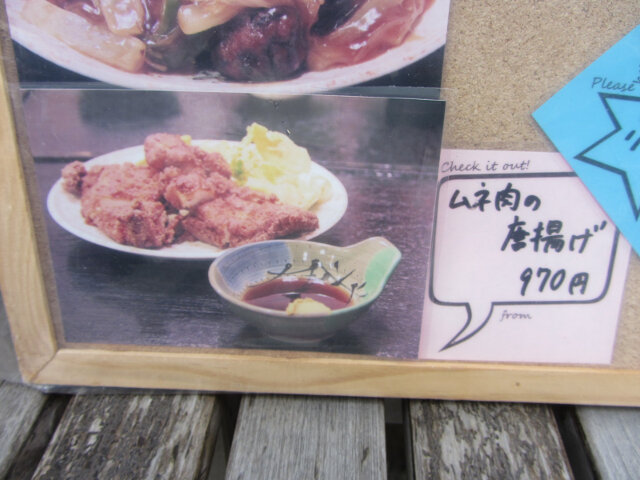 Please
Check it out!
ムネ肉の
唐揚げ
970円
from